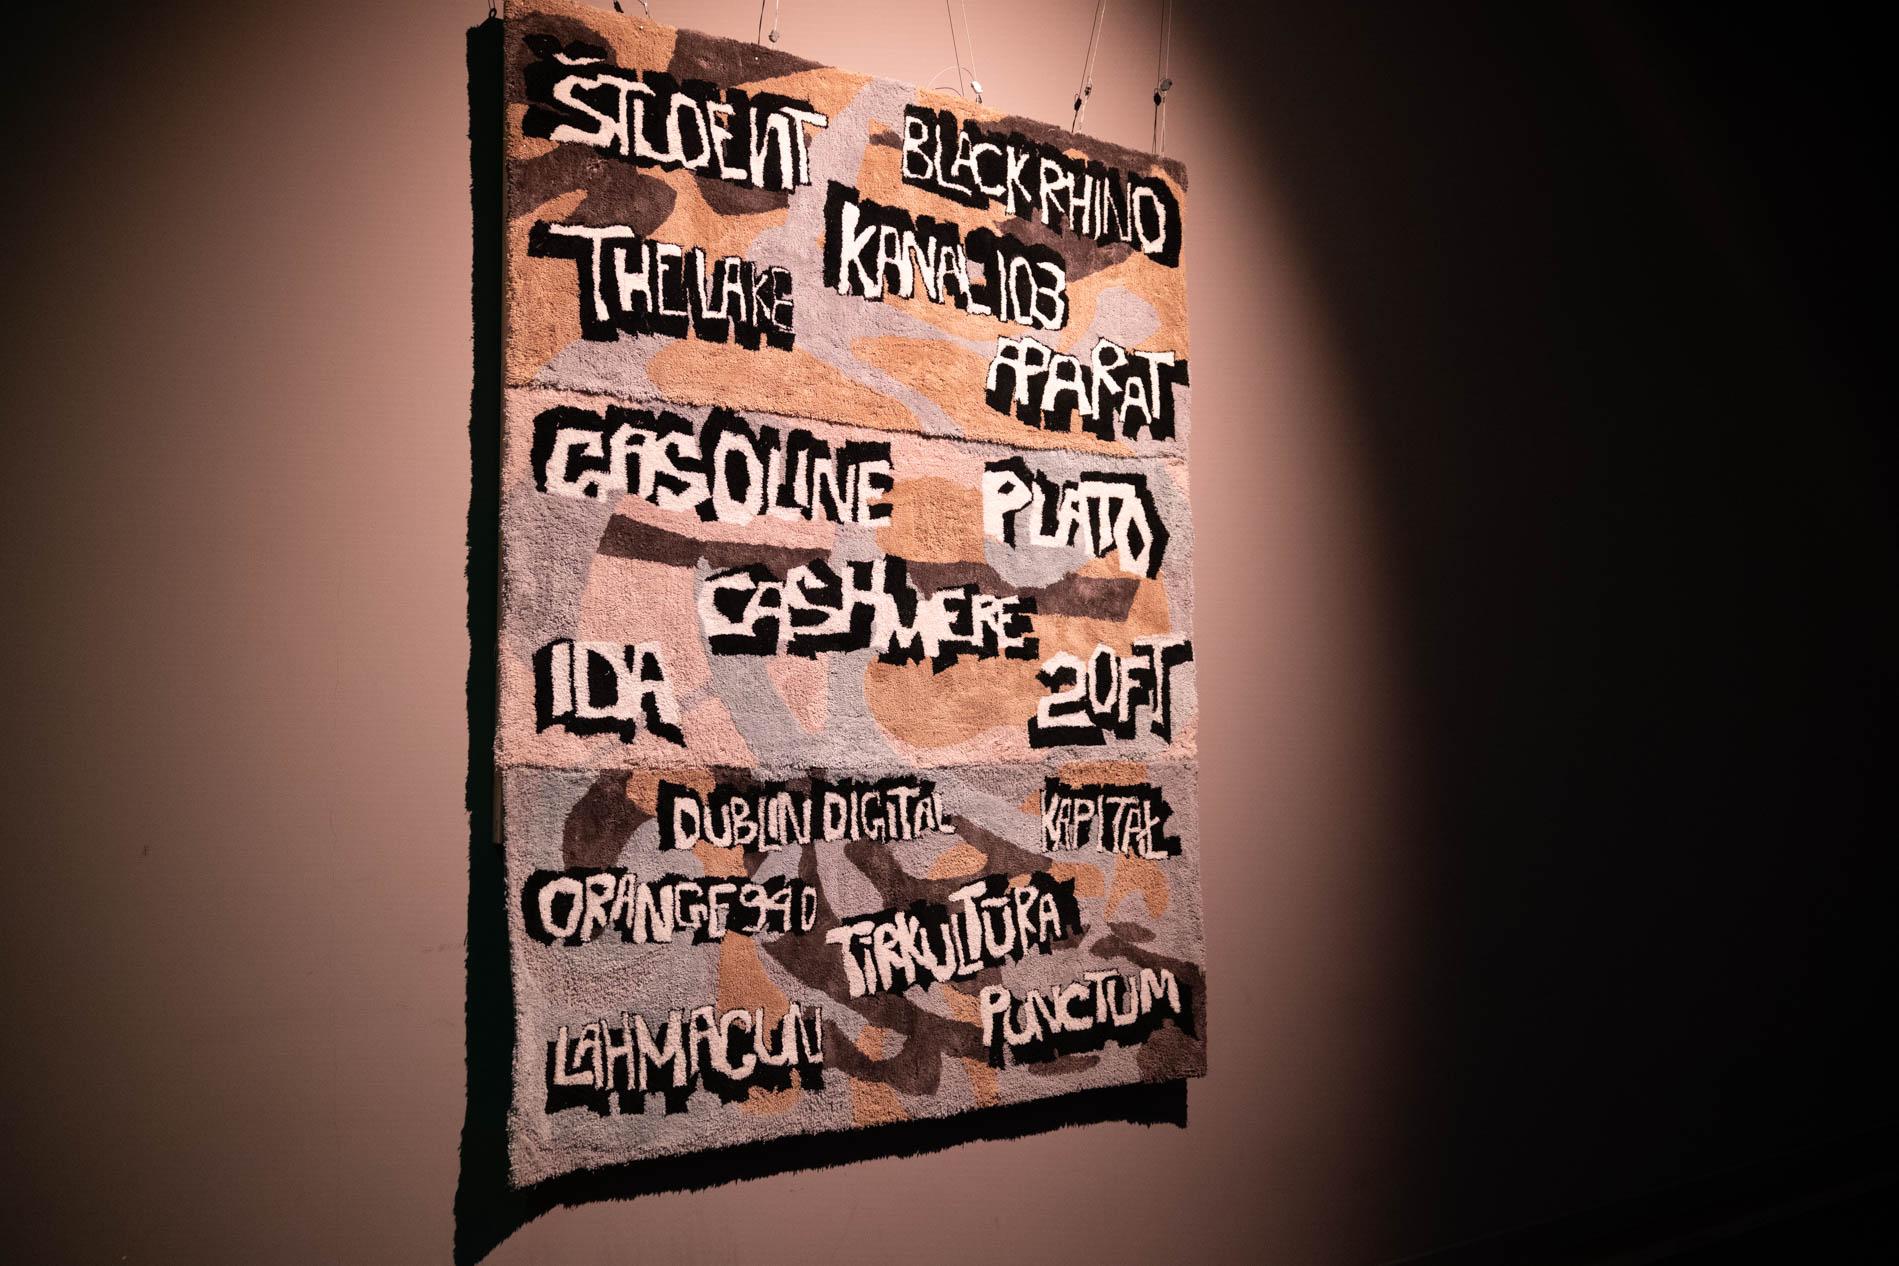 ŠTUDENT
BLACK RHINO
THE LAKE
KANAL103
APARAT
GASOLINE
PLATO
CASHMERE
IDA
20FT
DUBLIN DIGITAL
KAPITAŁ
ORANGE 94.0
TĪRKULTŪRA
LAHMACUN
PUNCTUM